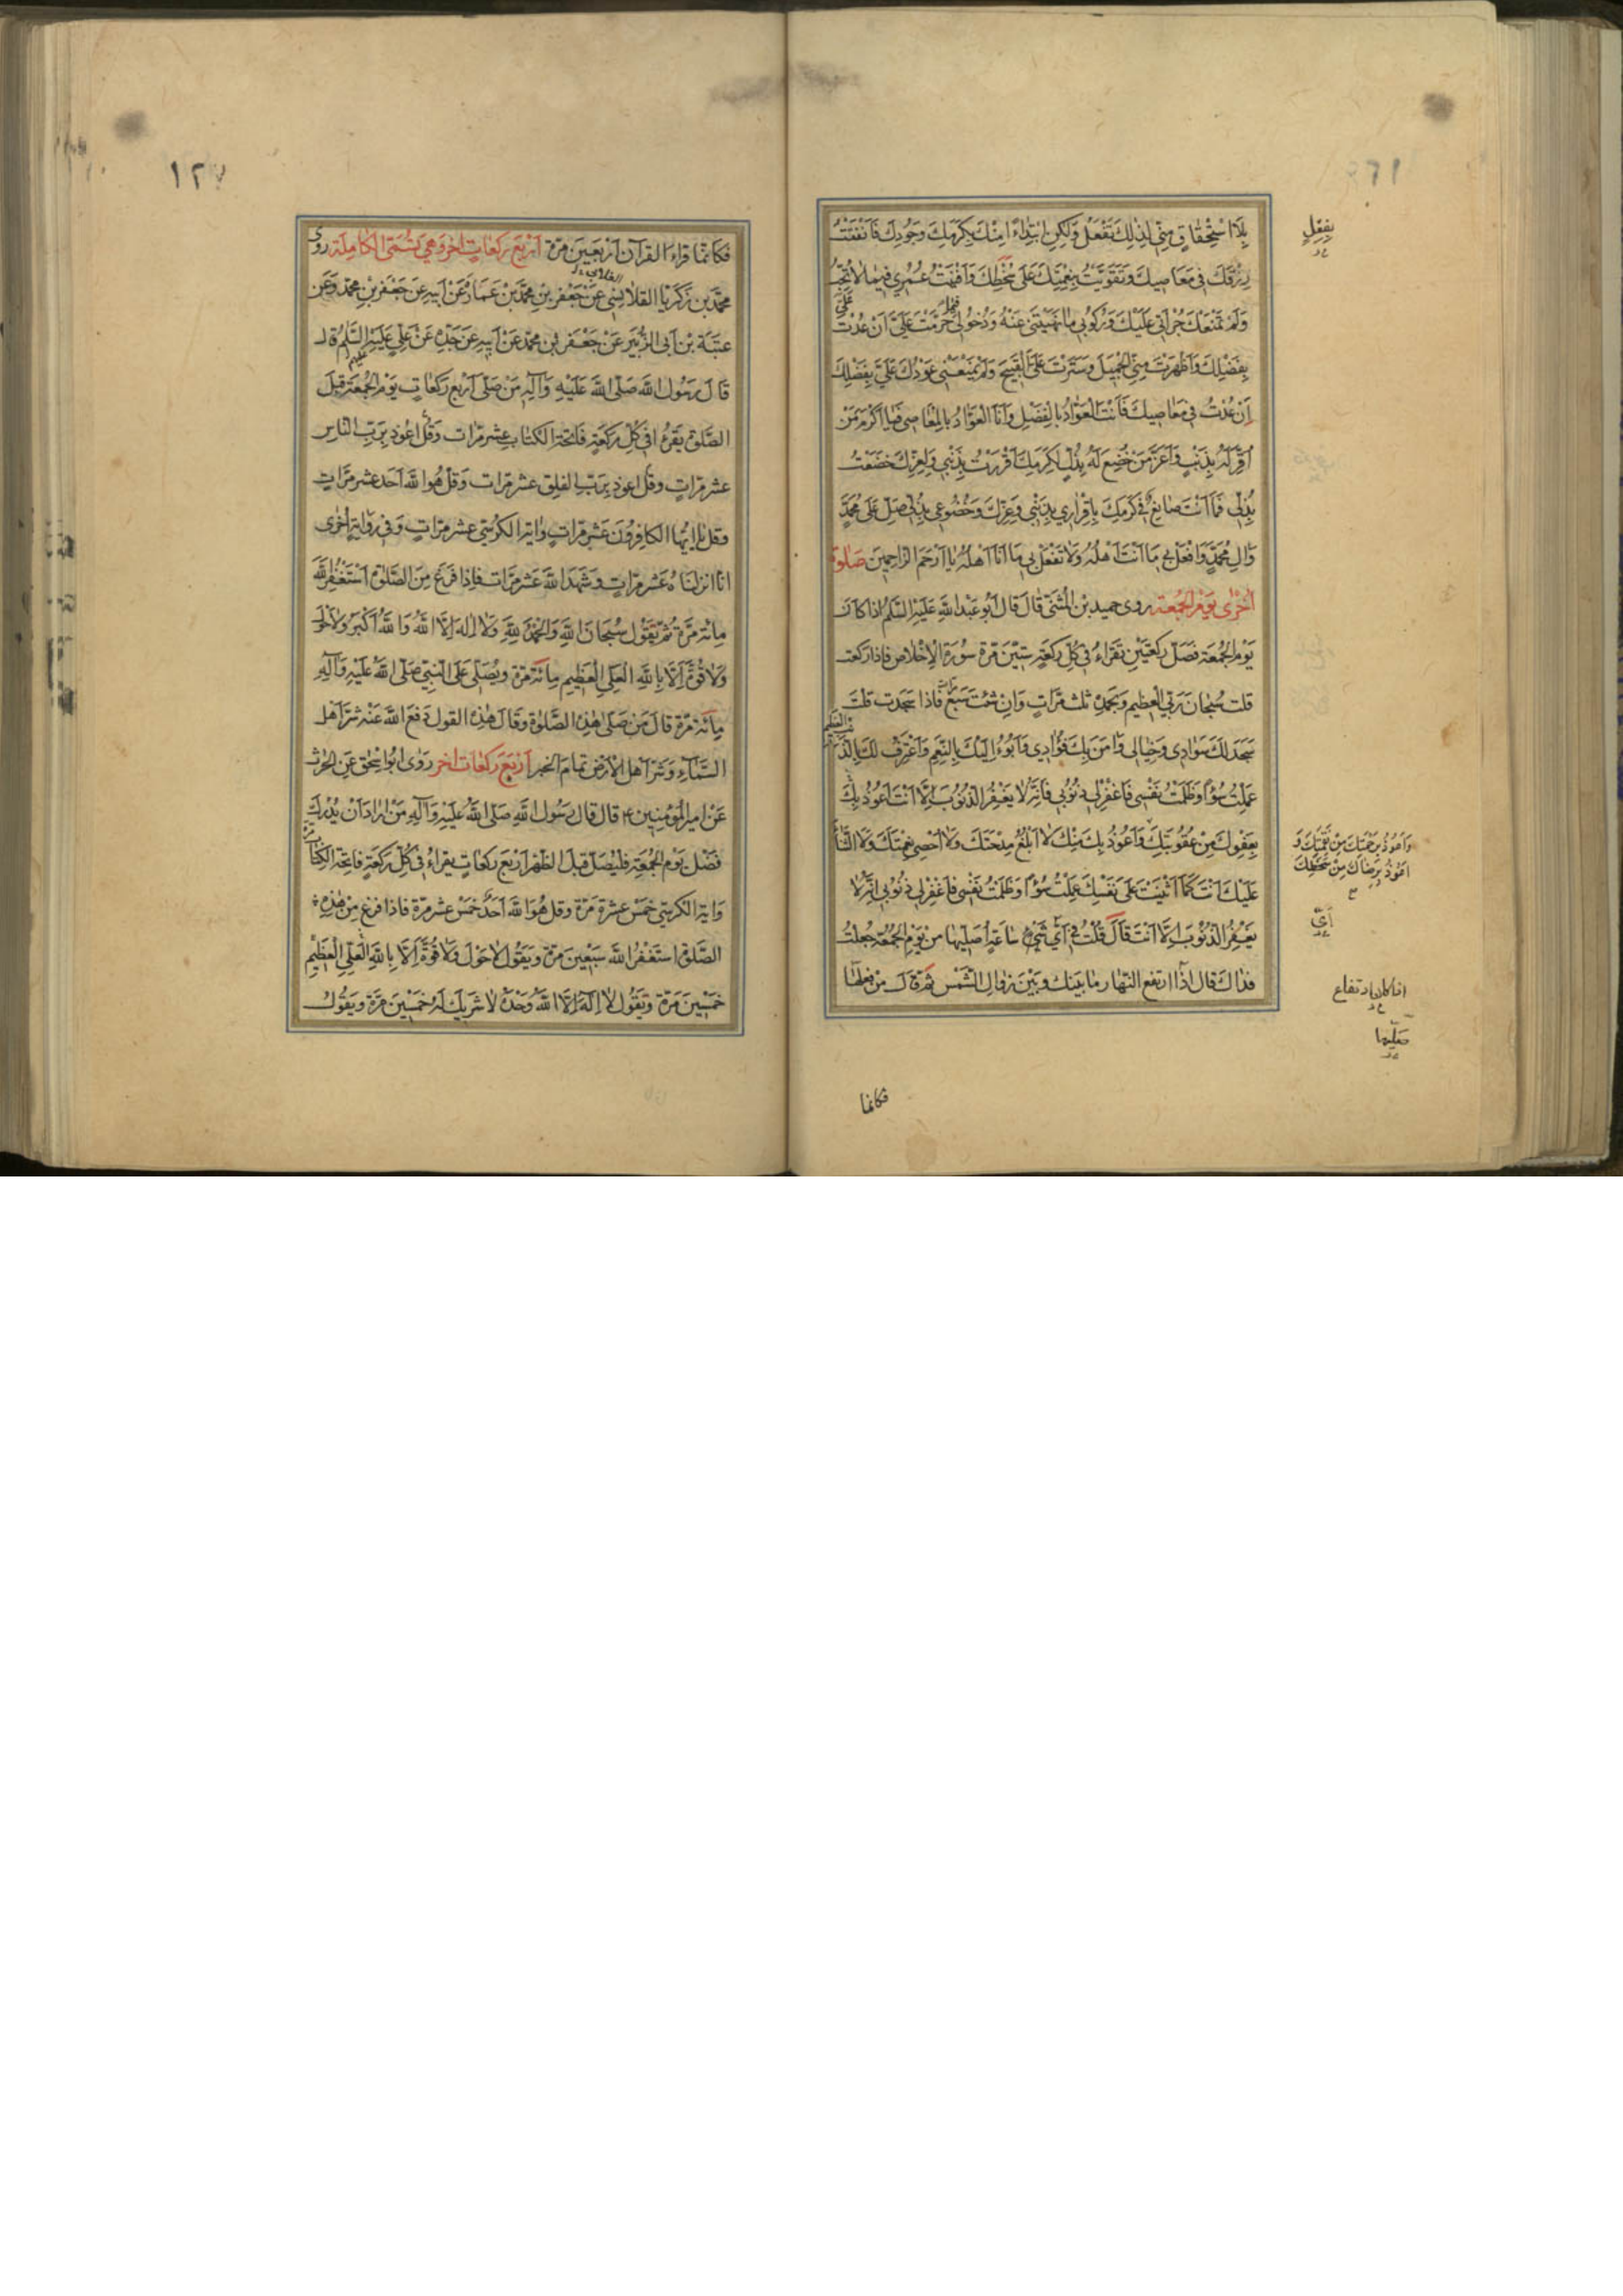 بِلَا اسْتِحْقَاقٍ مِنّي لِذٰلِكَ بِفِعْلٍ وَلٰكِنِ ابْتِدَاءً مِنْكَ بِكَرَمِكَ وَجُودِكَ فَاَنْفَقْتُ
رِزْقَكَ في مَعَاصيكَ وَتَقَوَّيْتُ بِنِعْمَتِكَ عَلَى سَخَطِكَ وَاَفْنَيْتُ عُمْري فيمَا لَا تُحِبُّ
وَلَمْ تَمْنَعْكَ جُرْأَتي عَلَيْكَ وَرُكُوبي مَا نَهَيْتَني عَنْهُ وَدُخُولي فيمَا حَرَّمْتَ عَلَيَّ اَنْ عُدْتَ عَلَيَّ
بِفَضْلِكَ وَاَظْهَرْتَ مِنّي الْجَميلَ وَسَتَرْتَ عَلَيَّ الْقَبيحَ وَلَمْ يَمْنَعْني عَوْدُكَ عَلَيَّ بِفَضْلِكَ
اِنْ عُدْتُ في مَعَاصيكَ فَاَنْتَ الْعَوَّادُ بِالْفَضْلِ وَاَنَا الْعَوَّادُ بِالْمَعَاصي فَيَا اَكْرَمَ مَنْ
اُقِرَّ لَهُ بِذَنْبٍ وَاَعَزَّ مَنْ خُضِعَ لَهُ بِذُلٍّ لِكَرَمِكَ اَقْرَرْتُ بِذَنْبي وَلِعِزِّكَ خَضَعْتُ
بِذُلّي فَمَا اَنْتَ صَانِعٌ في كَرَمِكَ بِاِقْرَاري بِذَنْبي وَعِزِّكَ وَخُضُوعي بِذُلّي صَلِّ عَلَى مُحَمَّدٍ
وَاٰلِ مُحَمَّدٍ وَافْعَلْ بي مَا اَنْتَ اَهْلُهُ وَلَا تَفْعَلْ بي مَا اَنَا اَهْلُهُ يَا اَرْحَمَ الرَّاحِمينَ صَلوة
اُخْرٰى يَوْمَ الْجُمُعَة روى حميد بن الْمُثَنّى قَالَ قَالَ اَبُو عَبْدِ اللّهِ عَلَيْهِ السَّلَمُ اذا كَانَ
يَوْمُ الْجُمُعَة فَصَلِّ رَكْعَتَيْنِ تَقْرَاءُ في كُلِّ رَكْعَةٍ سِتّينَ مَرّة سُورَة الْاِخْلَاص فاذا ركعت
قلت سُبْحَانَ رَبّي الْعَظيم وَبِحَمْدِهِ ثلث مَرّاتٍ وَاِنْ شئْتَ سَبْعَ مرات فاذا سَجَدت قلت
سَجَدَ لَكَ سَوَادي وَخَيَالي وَاٰمَنَ بِكَ فُؤادي وَاَبُوءُ اِلَيْكَ بِالنِّعَمِ وَاَعْتَرِفُ لَكَ بِالذَّنْبِ الْعَظيم
عَمِلْتُ سُوءً وَظَلَمْتُ نَفْسي فَاغْفِرْ لي ذُنُوبي فَاِنَّهُ لَا يَغْفِرُ الذُّنُوبَ اِلَّا اَنْتَ اَعُوذُ بِكَ
بِعَفْوِكَ مِنْ عُقُوبَتِكَ وَاَعُوذُ بِكَ مِنْكَ لَا اَبْلُغُ مِدْحَتَكَ وَلَا اُحْصي نِعْمَتَكَ وَلَا الثَّنَاءَ
عَلَيْكَ اَنْتَ كَمَا اَثْنَيْتَ عَلَى نَفْسِكَ عَمِلْتُ سُوءً وَظَلَمْتُ نَفْسي فَاغْفِرْ لي ذُنُوبي اِنَّهُ لَا
يَغْفِرُ الذُّنُوبَ اِلَّا اَنْتَ قَالَ قُلْتُ في اَيِّ شَيْءٍ سَاعَةٍ اُصَلّيهَا مِنْ يَوْمِ الْجُمُعَة جُعِلْتُ
فداك قال اذا ارتفع النّهار مَا بَينك وبَيْنَ زوال الشَّمْس ثمّ قَالَ مَنْ فعلهَا
بفعْلٍ
وَاَعُوذُ بِرَحْمَتِكَ مِنْ نِقْمَتِكَ وَ
اَعُوذُ بِرِضَاكَ مِنْ سَخَطِكَ
اَيّ
ارتفاع
صَلّيها
فكانما
١٢٧
فَكَانمَّا قراءَ القرآن اَرْبَعينَ مَرّة اَرْبَعَ رَكَعَاتٍ اُخَرَ وَهِيَ تُسَمَّى الْكَامِلَة روى
محمّد بن زكريا القلانِسي عَنْ جَعْفر بن محمّد بن عمَارة عَنْ اَبيه عن جَعْفَر بن محمّد وَعَنْ
عتبَة بن اَبي الزُّبَير عَنْ جَعْفَر بن محمّد عَنْ اَبيه عَنْ جَدّه عَنْ عَلي عَلَيْهِ السَّلمُ قال
قَالَ رَسُول اللّه صَلّى اللّه عَلَيْهِ وَآلِهِ مَنْ صَلّى اَرْبَع رَكعَاتٍ يَوْمَ الْجُمُعَة قبل
الصَّلوة يَقْرَءُ في كُلّ رَكعَةٍ فَاتِحَة الْكتَاب عَشْر مَرّات وقُلْ اَعُوذ بِرَبّ النّاس
عشر مَرّاتٍ وقل اعوذ بِرَبّ الفلق عشر مَرّات وَقل هُوَ اللّه اَحَد عشر مَرّاتٍ
وقل يَا ايّها الكافرُونَ عَشر مَرّاتٍ واية الكرسي عشر مَرّاتٍ وَفي رِوَايةٍ اُخْرى
انّا انزلنَاهُ عَشْر مَرّاتٍ وَشَهِدَ اللّه عَشْر مَرّات فاذا فَرَغَ مِنَ الصَّلوة اسْتَغْفَرَ اللّه
مِائة مَرّة ثُمّ يَقُول سُبْحَانَ اللّهِ وَالْحَمْدُ لِلّهِ وَلَا اِلهَ اِلَّا اللّهُ وَ اللّهُ اَكْبَر وَلَا حَوْلَ
وَلَا قُوَّةَ اِلَّا بِاللّهِ الْعَلِيِّ الْعَظيم مائة مَرّة وَيُصَلّي عَلَى النّبيّ صَلّى اللّهُ عَلَيْهِ وَآلِهِ
مِائة مَرّة قال مَن صَلّى هٰذه الصَّلوٰة وقال هٰذا القول دَفعَ اللّه عَنْهُ شَرّ اَهل
السَّمَاءِ وَشَرّ اَهل الْارض تَمَامَ الخبر اَرْبَعَ رَكعَات اخر رَوٰى ابُو اسْحق عَنِ الحٰرث
عَنْ امير المؤمنينَ ع قَال قال رَسُول اللّهِ صَلّى اللّهُ عَلَيْهِ وَآلِه مَنْ ارَادَ اَنْ يُدْرِكَ
فَضْل يَوْمِ الجُمُعَة فليُصَلّ قبل الظّهر اَرْبَعَ رَكعَاتٍ يَقراءُ في كُلّ رَكعَة فَاتِحة الكِتَاب مَرّة
وَاية الكرسي خمْسَ عشرة مَرّة وقل هُوَ اللّه اَحَدٌ خَمْسَ عشر مَرّة فاذا فرغ مِنْ هٰذِهِ
الصَّلوة استَغْفرَ اللّه سَبْعِينَ مَرّة وَيَقُول لَا حَوْلَ وَلَا قُوَّةَ اِلَّا بِاللّهِ الْعَلِيِّ الْعَظيمِ
خَمْسِينَ مَرّة وَيَقُول لَا اِلَهَ اِلَّا اللّهُ وَحْدَهُ لَا شَرِيكَ لَهُ خَمْسِينَ مَرّة وَيَقُولُ